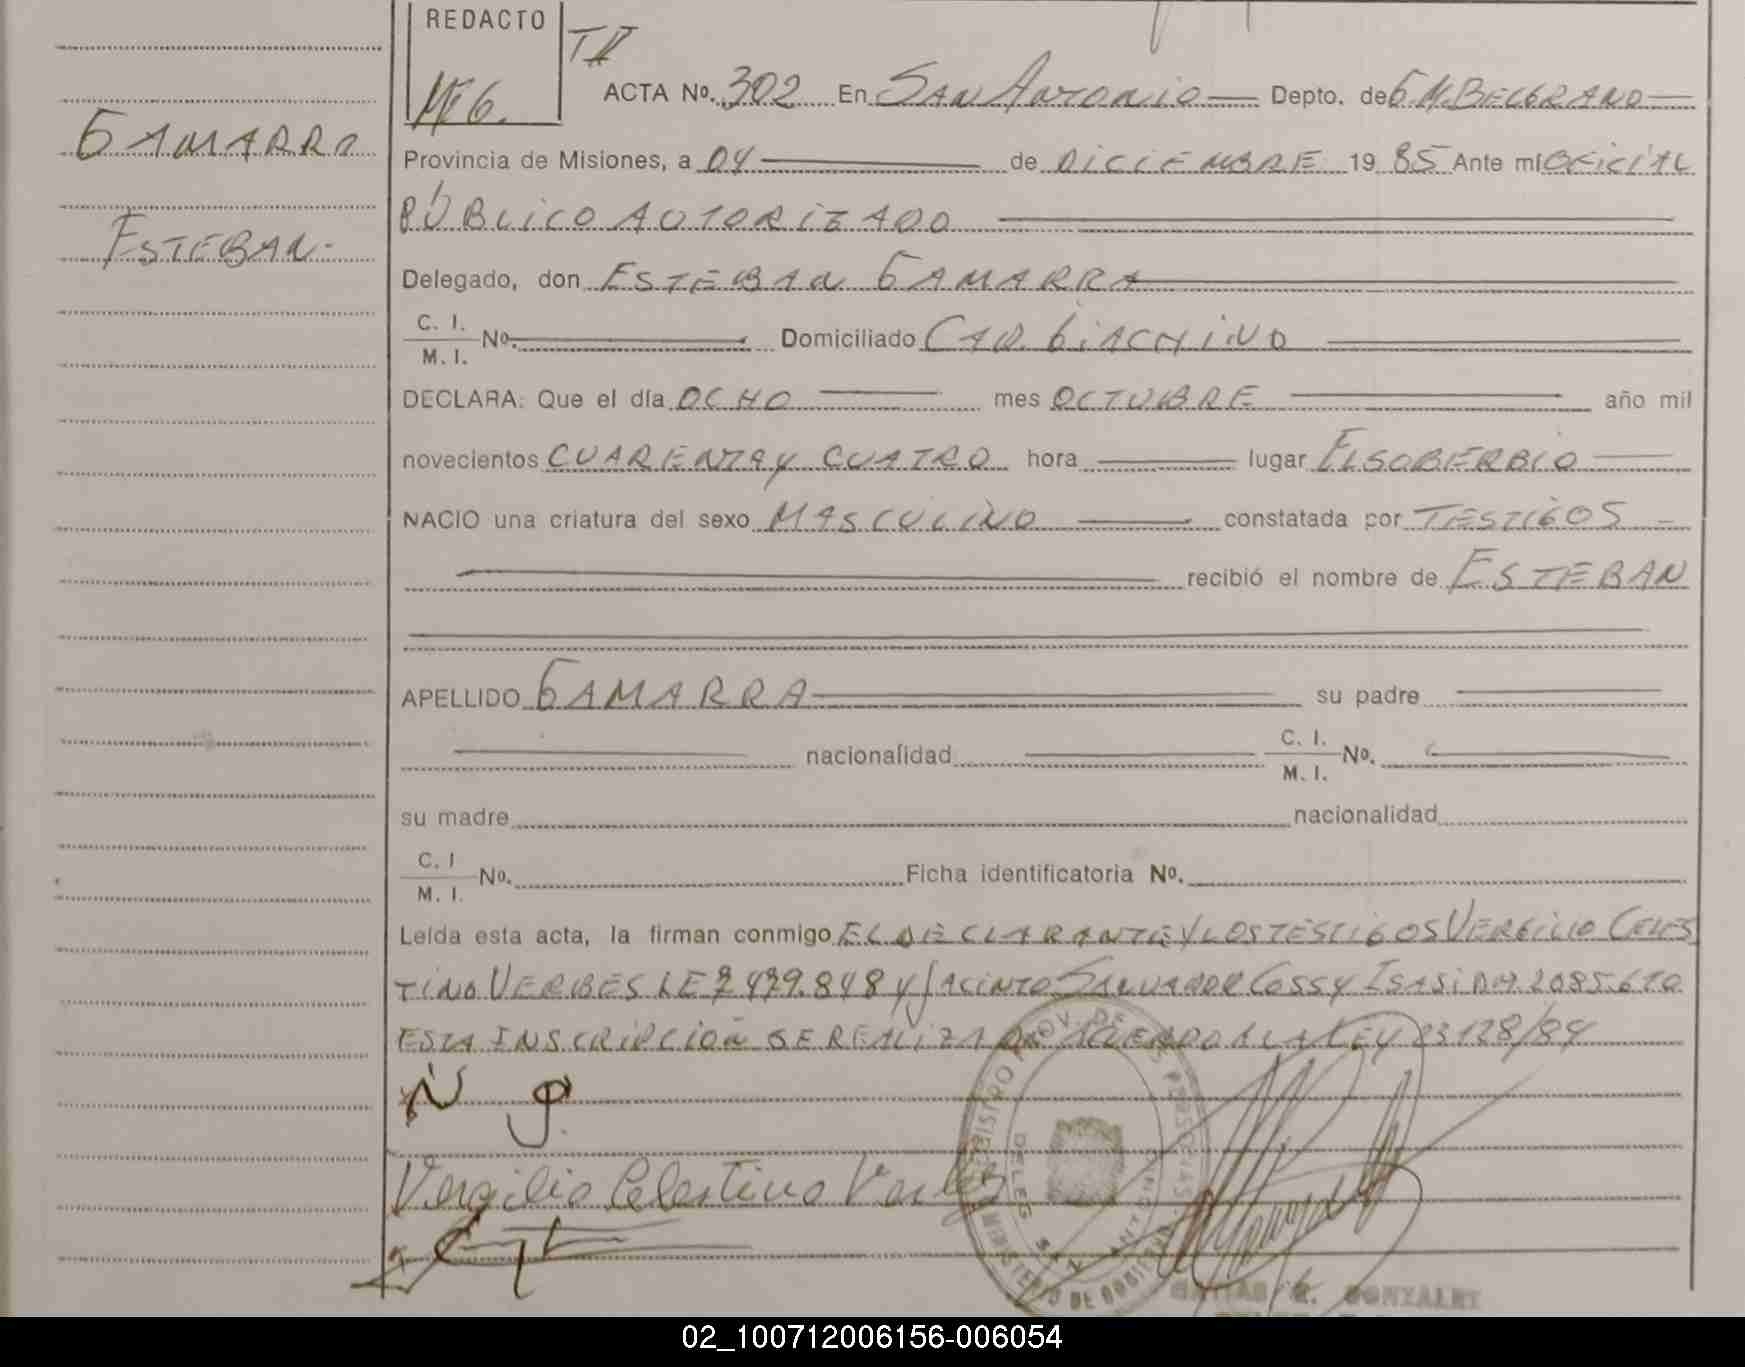 REDACTO
TR
ACTA Nº. 302 En SAN ANTONIO Depto. de G.M. BELGRANO
GAMARRA
Provincia de Misiones, a 04 de DICIEMBRE 19 85 Ante mi OFICIAL
PÚBLICO AUTORIZADO
ESTEBAN
Delegado, don ESTEBAN GAMARRA
C. I.
M. I. Nº. Domiciliado CAP. GIACHINO
DECLARA: Que el día OCHO mes OCTUBRE año mil
novecientos CUARENTA Y CUATRO hora lugar EL SOBERBIO
NACIO una criatura del sexo MASCULINO constatada por TESTIGOS
recibió el nombre de ESTEBAN
APELLIDO GAMARRA su padre
nacionalidad C. I. M. I. Nº.
su madre nacionalidad
C. I M. I. Nº. Ficha identificatoria Nº.
Leída esta acta, la firman conmigo EL DECLARANTE Y LOS TESTIGOS VERGILIO CELES
TINO VERBES LE 7.479.848 Y JACINTO SALVADOR COSSY ISASI DM. 2085.670
ESTA INSCRIPCION SE REALIZA DE ACUERDO A LA LEY 23128/84
Vergilio Celestino
REGISTRO PROV. DE LAS PERSONAS
DELEG. SAN ANTONIO
MINISTERIO DE GOBIERNO
MATIAS R. GONZALEZ
02_100712006156-006054